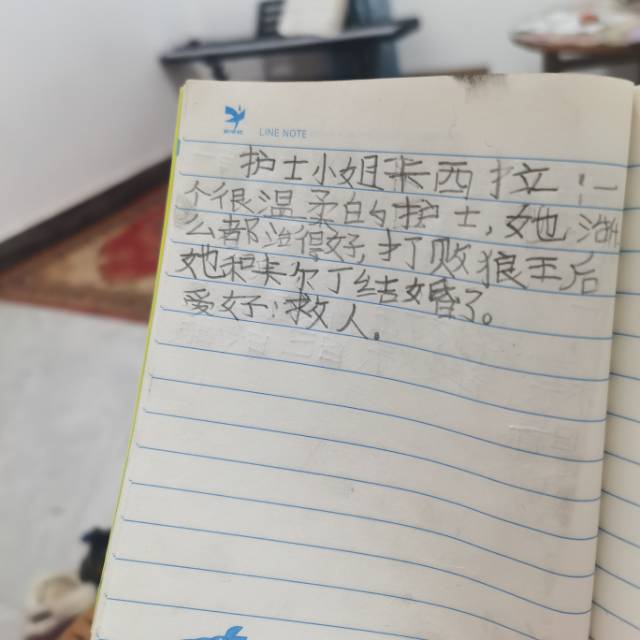 LINE NOTE
护士小姐朱西拉，一
个很温柔的护士，她，治什
么都治得好，打败狼王后
她和朱尔丁结婚了。
爱好：救人。